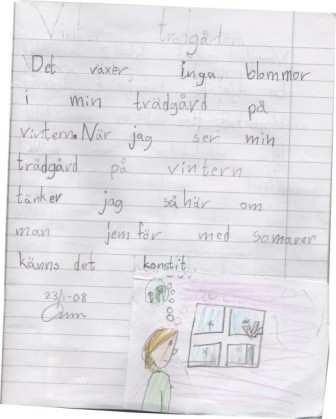 trägården
Det växer inga blommor
i min trädgård på
vintern. När jag ser min
trädgård på vintern
tänker jag såhär om
man jemför med somaren
känns det konstit
23/1-08